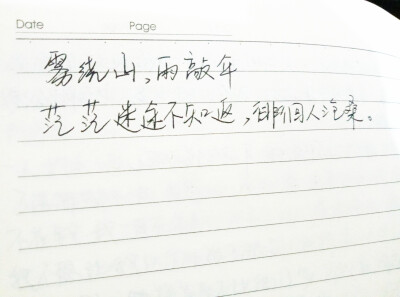 Date Page
雾绕山,雨敲年
茫茫迷途不知返,徘徊人沧桑。